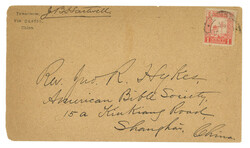 J. B. Hartwell
Rev. Jno. R. Hykes
American Bible Society
15a Kinkiang Road
Shanghai,
China.